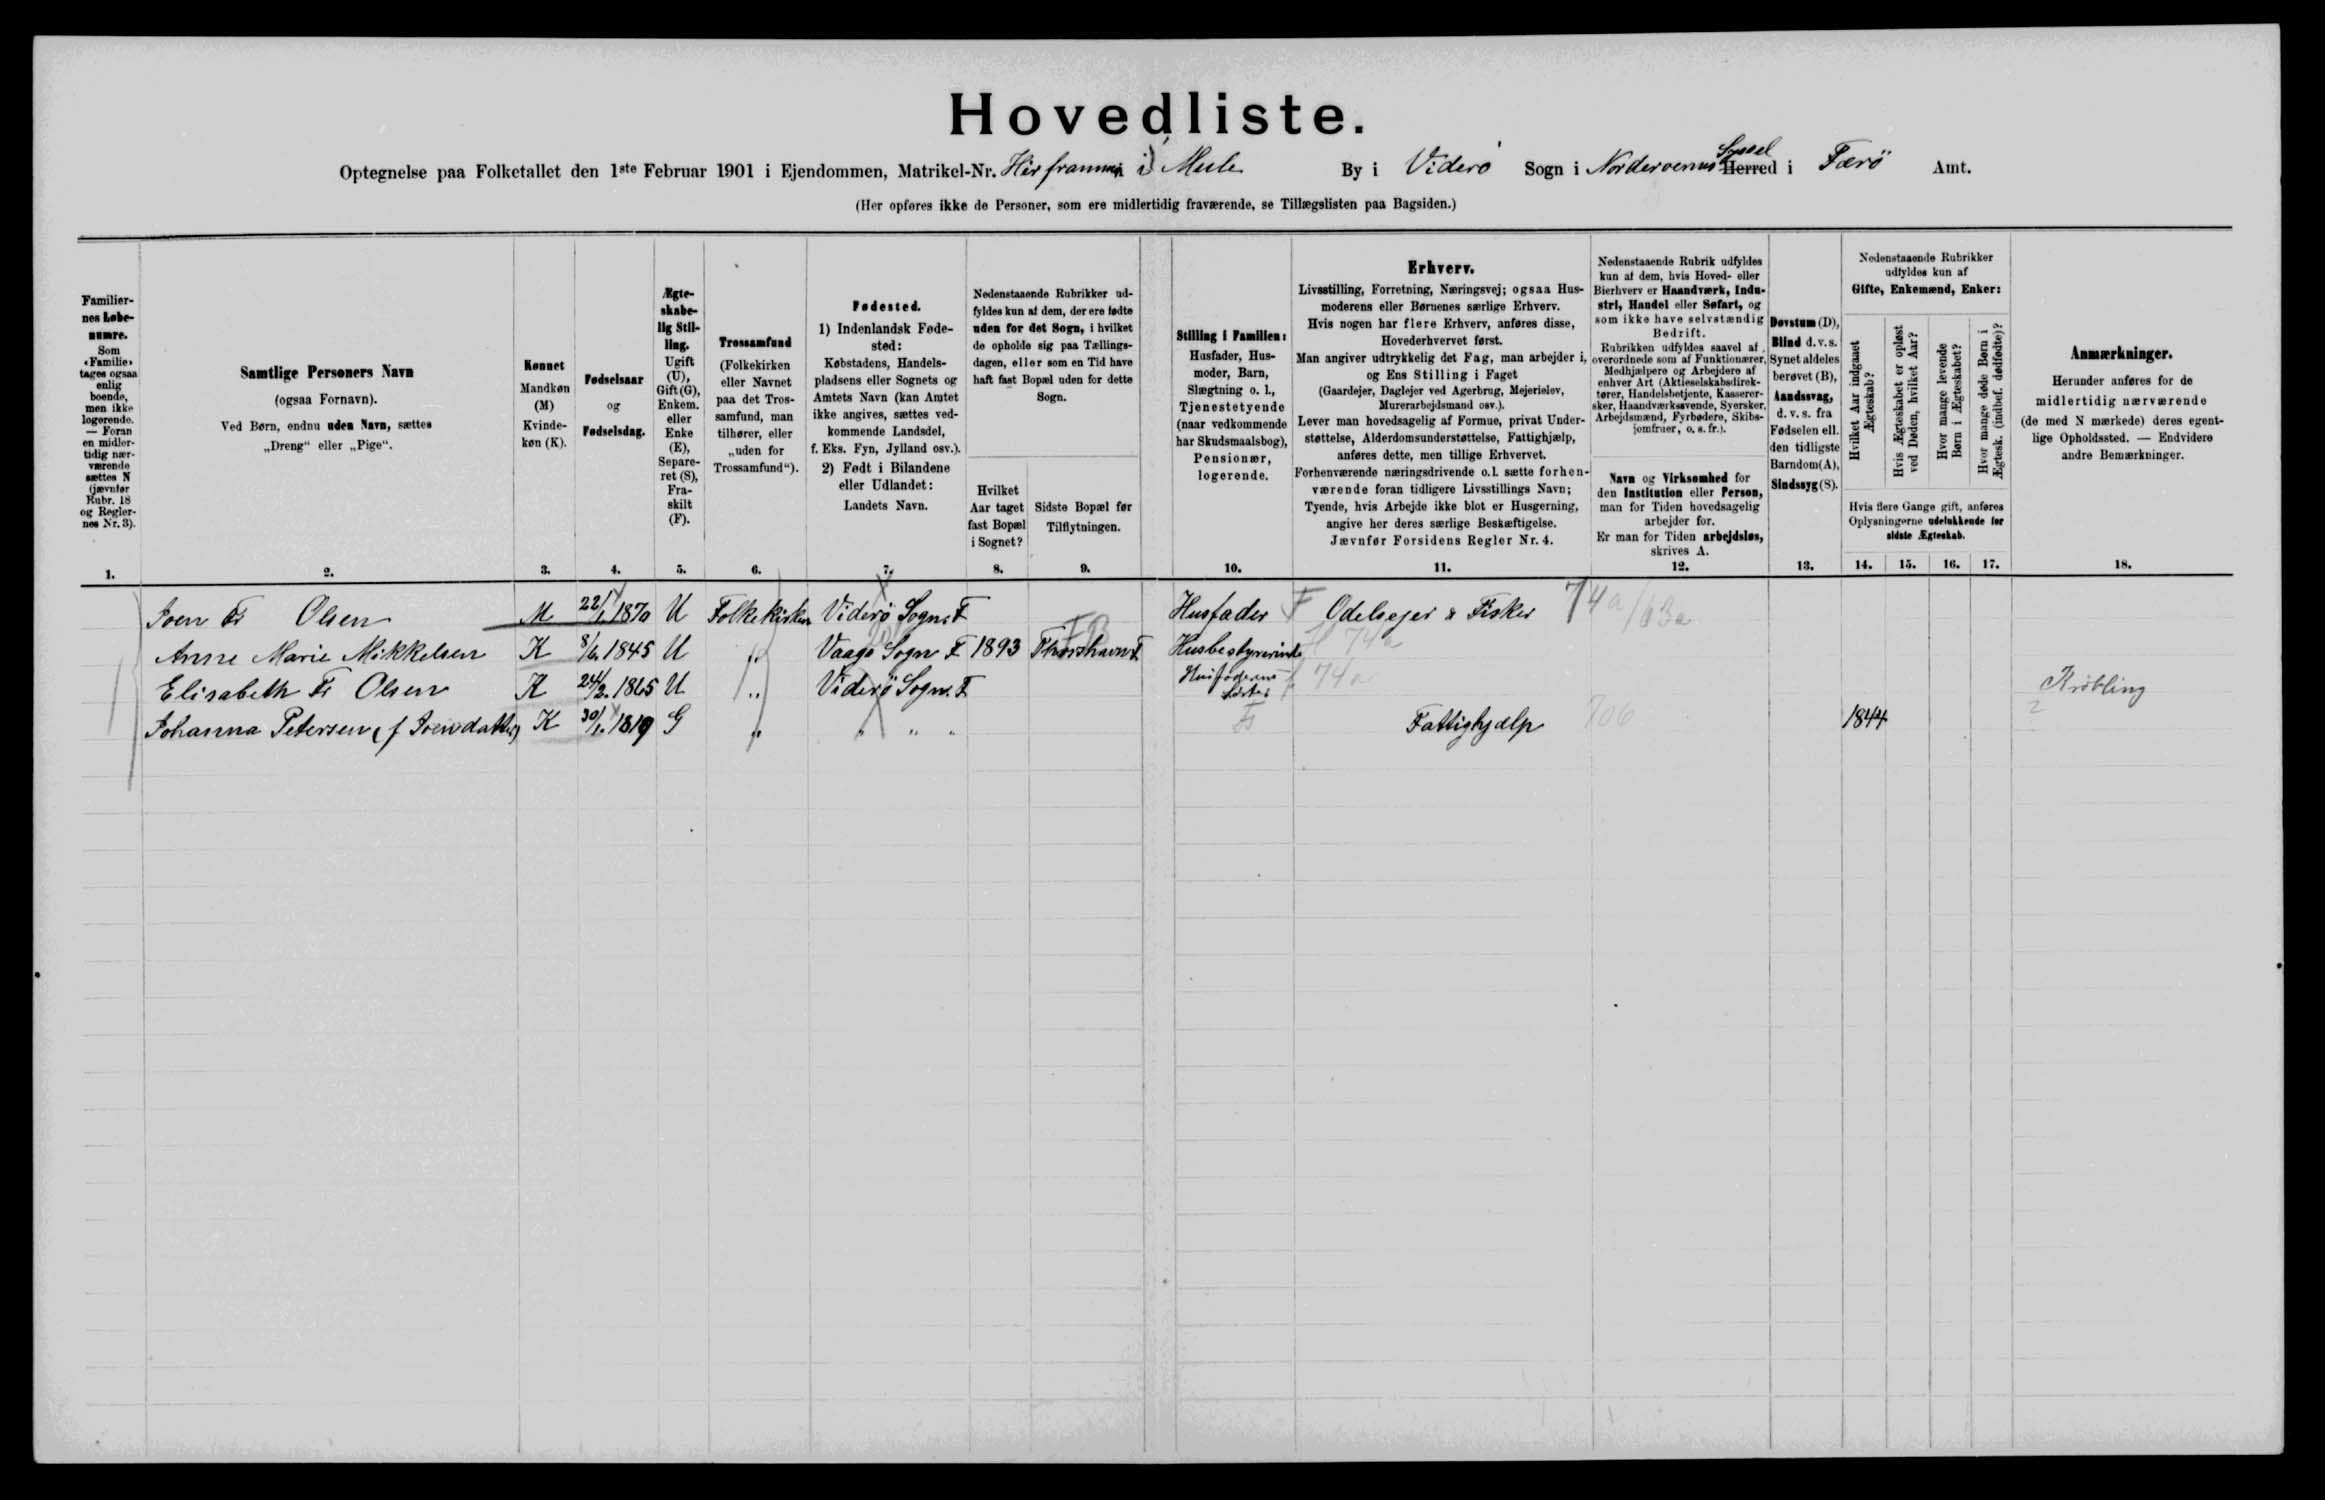 Hovedliste.
Optegnelse paa Folketallet den 1ste Februar 1901 i Ejendommen, Matrikel-Nr. Hir frammi i Mule By i Viderø Sogn i Norderoernes Herred Syssel i Færö Amt.
(Her opføres ikke de Personer, som ere midlertidig fraværende, se Tillægslisten paa Bagsiden.)
Familier-
nes Løbe-
numre.
Som
«Familie»
tages ogsaa
enlig
boende,
men ikke
logerende.
— Foran
en midler-
tidig nær-
værende
sættes N
(jævnfør
Rubr. 18
og Regler-
nes Nr. 3).
1.
Samtlige Personers Navn
(ogsaa Fornavn).
Ved Børn, endnu uden Navn, sættes
„Dreng“ eller „Pige“.
2.
Kønnet
Mandkøn
(M)
Kvinde-
køn (K).
3.
Fødselsaar
og
Fødselsdag.
4.
Ægte-
skabe-
lig Stil-
ling.
Ugift
(U),
Gift (G),
Enkem.
eller
Enke
(E),
Separe-
ret (S),
Fra-
skilt
(F).
5.
Trossamfund
(Folkekirken
eller Navnet
paa det Tros-
samfund, man
tilhører, eller
„uden for
Trossamfund“).
6.
Fødested.
1) Indenlandsk Føde-
sted:
Købstadens, Handels-
pladsens eller Sognets og
Amtets Navn (kan Amtet
ikke angives, sættes ved-
kommende Landsdel,
f. Eks. Fyn, Jylland osv.).
2) Født i Bilandene
eller Udlandet:
Landets Navn.
7.
Nedenstaaende Rubrikker ud-
fyldes kun af dem, der ere fødte
uden for det Sogn, i hvilket
de opholde sig paa Tællings-
dagen, eller som en Tid have
haft fast Bopæl uden for dette
Sogn.
Hvilket
Aar taget
fast Bopæl
i Sognet?
8.
Sidste Bopæl før
Tilflytningen.
9.
Stilling i Familien:
Husfader, Hus-
moder, Barn,
Slægtning o. l.,
Tjenestetyende
(naar vedkommende
har Skudsmaalsbog),
Pensionær,
logerende.
10.
Erhverv.
Livsstilling, Forretning, Næringsvej; ogsaa Hus-
moderens eller Børnenes særlige Erhverv.
Hvis nogen har flere Erhverv, anføres disse,
Hovederhvervet først.
Man angiver udtrykkelig det Fag, man arbejder i,
og Ens Stilling i Faget
(Gaardejer, Daglejer ved Agerbrug, Mejerielev,
Murerarbejdsmand osv.).
Lever man hovedsagelig af Formue, privat Under-
støttelse, Alderdomsunderstøttelse, Fattighjælp,
anføres dette, men tillige Erhvervet.
Forhenværende næringsdrivende o.l. sætte forhen-
værende foran tidligere Livsstillings Navn;
Tyende, hvis Arbejde ikke blot er Husgerning,
angive her deres særlige Beskæftigelse.
Jævnfør Forsidens Regler Nr. 4.
11.
Nedenstaaende Rubrik udfyldes
kun af dem, hvis Hoved- eller
Bierhverv er Haandværk, Indu-
stri, Handel eller Søfart, og
som ikke have selvstændig
Bedrift.
Rubrikken udfyldes saavel af
overordnede som af Funktionærer,
Medhjælpere og Arbejdere af
enhver Art (Aktieselskabsdirek-
tører, Handelsbetjente, Kasserer-
sker, Haandværkssvende, Syersker,
Arbejdsmænd, Fyrbødere, Skibs-
jomfruer, o. s. fr.).
Navn og Virksomhed for
den Institution eller Person,
man for Tiden hovedsagelig
arbejder for.
Er man for Tiden arbejdsløs,
skrives A.
12.
Døvstum (D),
Blind d. v. s.
Synet aldeles
berøvet (B),
Aandssvag,
d. v. s. fra
Fødselen ell.
den tidligste
Barndom(A),
Sindssyg (S).
13.
Nedenstaaende Rubrikker
udfyldes kun af
Gifte, Enkemænd, Enker:
Hvilket Aar indgaaet
Ægteskab?
Hvis Ægteskabet er opløst
ved Døden, hvilket Aar?
Hvor mange levende
Børn i Ægteskabet?
Hvor mange døde Børn i
Ægtesk. (indbef. dødfødte)?
Hvis flere Gange gift, anføres
Oplysningerne udelukkende for
sidste Ægteskab.
14. 15. 16. 17.
Anmærkninger.
Herunder anføres for de
midlertidig nærværende
(de med N mærkede) deres egent-
lige Opholdssted. — Endvidere
andre Bemærkninger.
18.
Joen Fr Olsen M 22/1 1870 U Folkekirken Viderö Sogn. F Husfader F Odelsejer & Fisker 74a/63a
Anne Marie Mikkelsen K 8/6 1845 U " Vaagö Sogn F 1893 Thorshavn F Husbestyrerinde 74a
Elisabeth Fr Olsen K 24/2 1865 U " Viderö Sogn. F Husfaderens Søster f 74a Krøbling
Johanna Petersen (f Joensdatter) K 30/1 1819 G " " " " Fattighjælp 706 1844